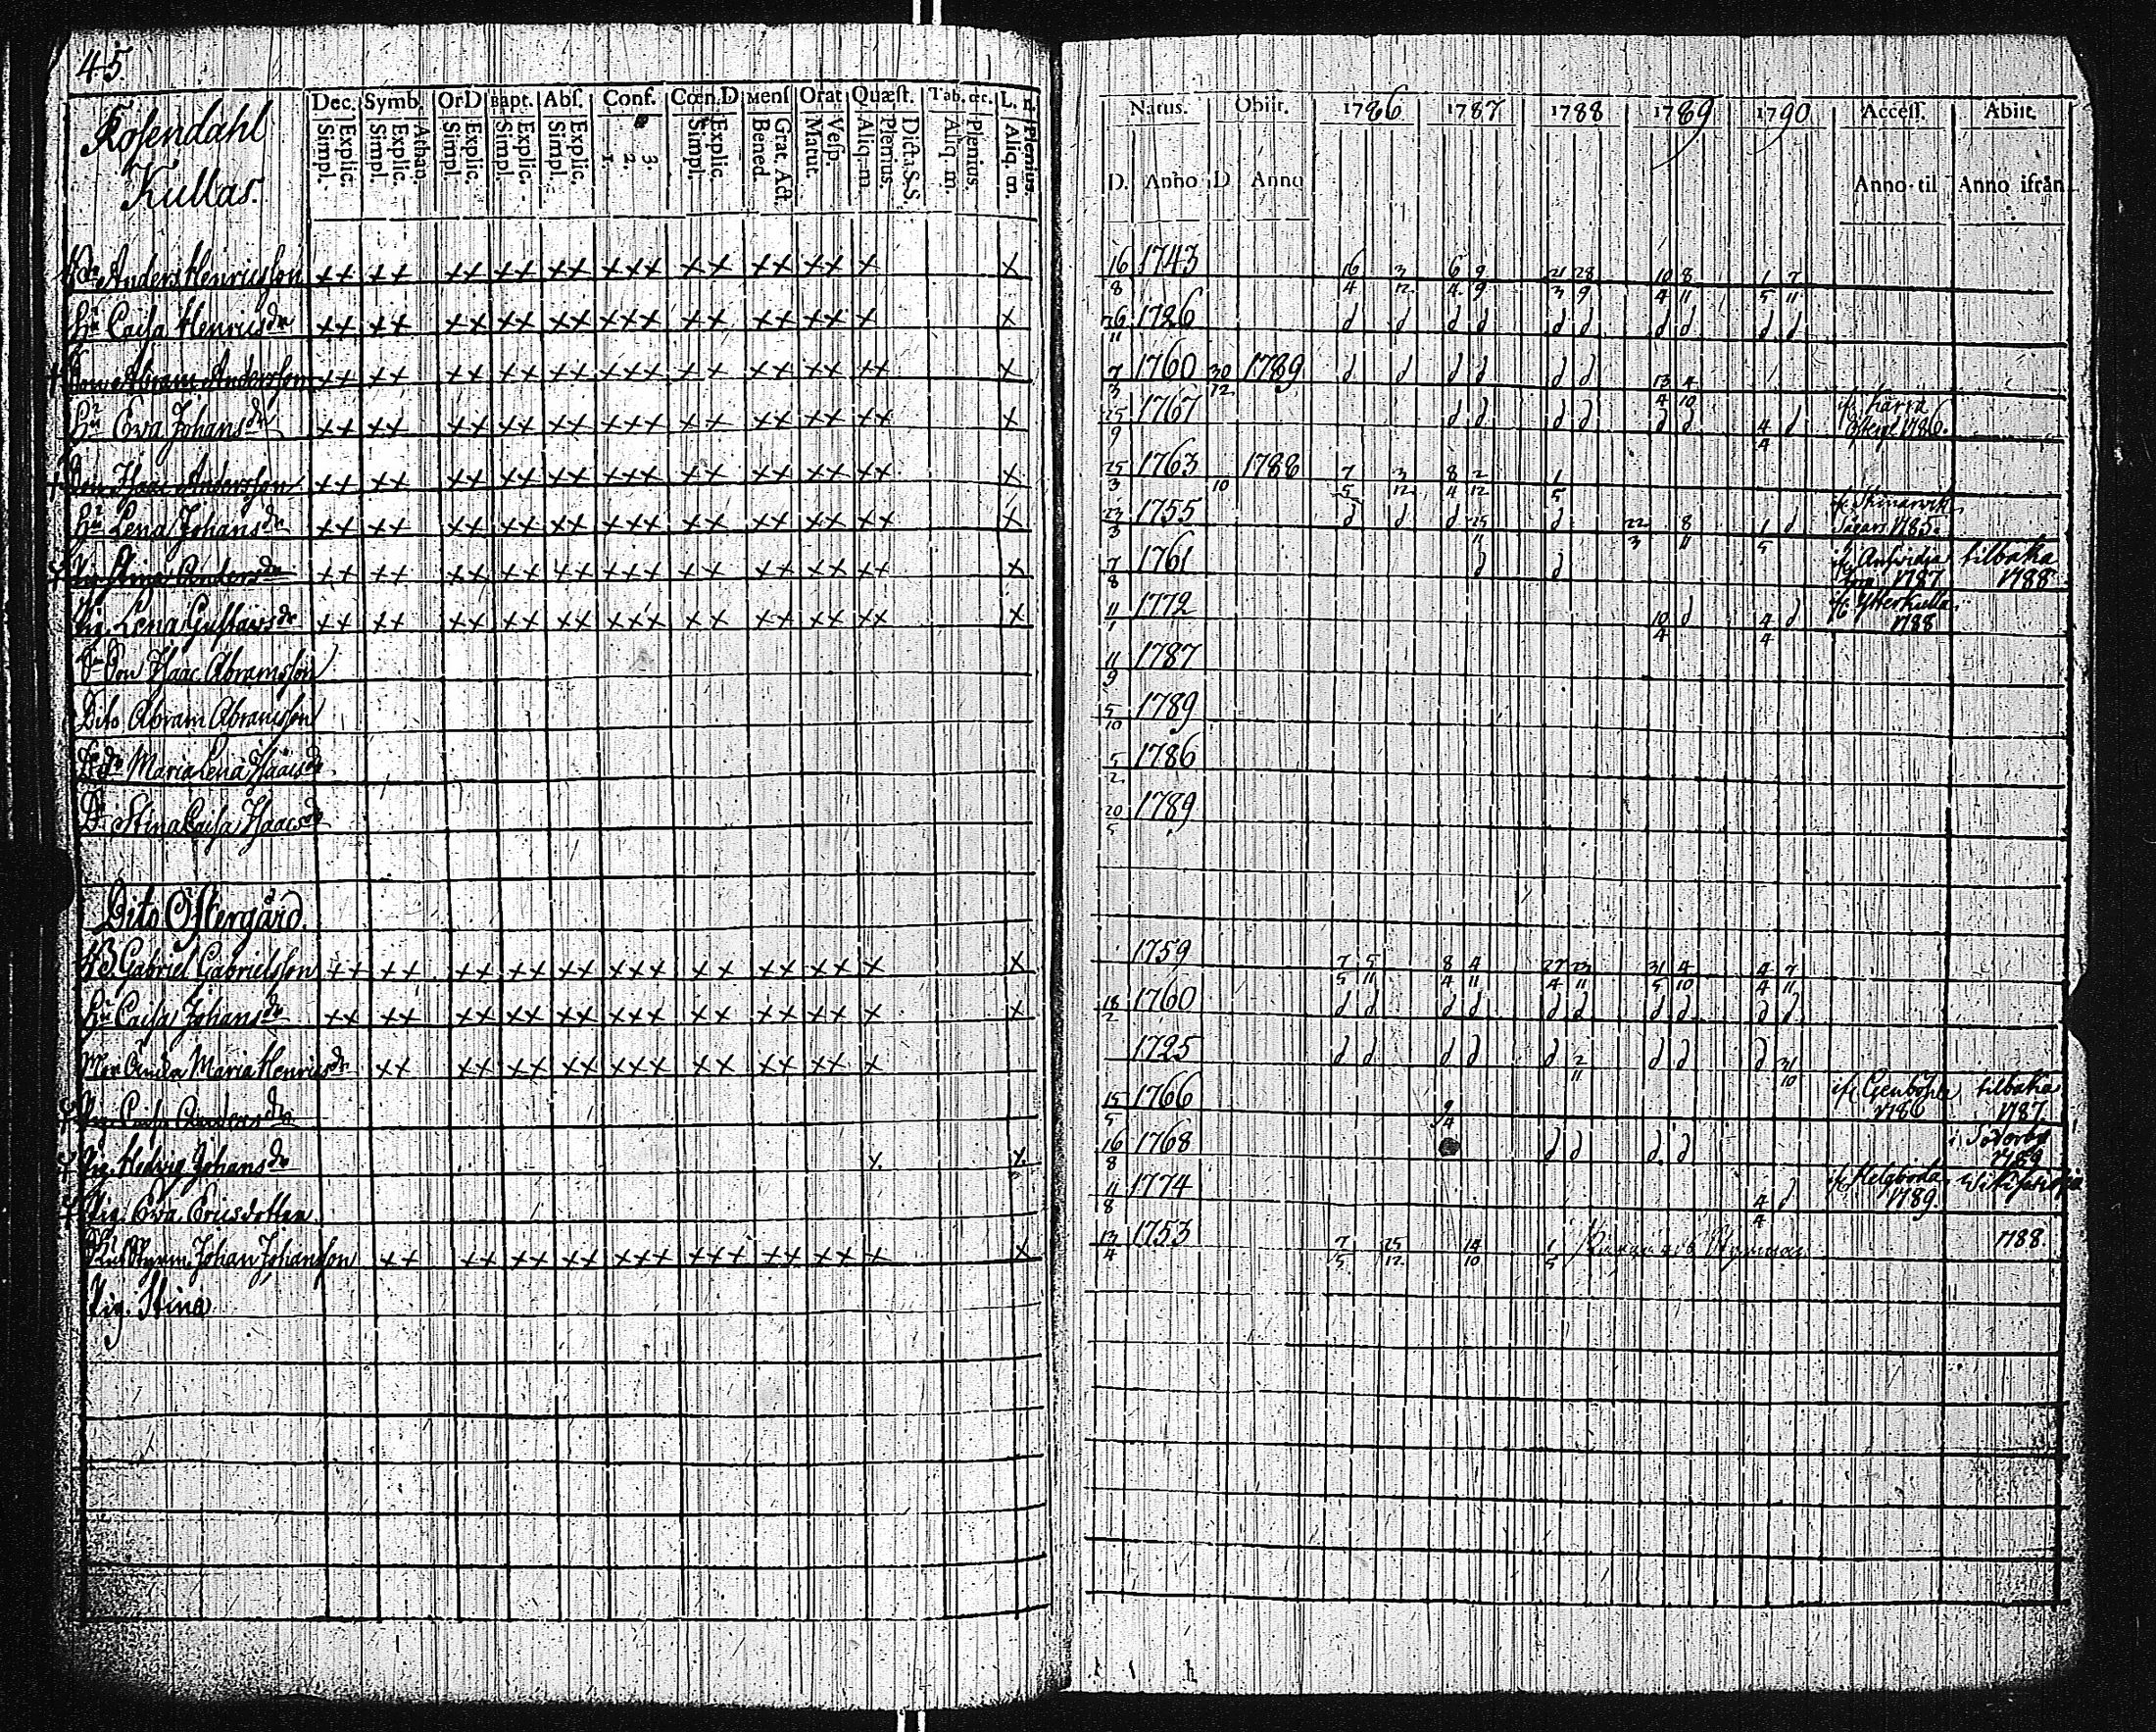 45
Rosendahl
Kullas.
Dec. Symb. OrD Bapt. Abs. Conf. Cœn.D Mens Orat Quæst. Tab. œc. L. n.
Simpl. Explic. Simpl. Explic. Athan. Simpl. Explic. Simpl. Explic. Simpl. Explic. 1. 2. 3. Simpl. Explic. Bened. Grat. Act. Matut. Vesp. Aliq. m. Plenius. Dicta. S. S. Aliq. m. Plenius. Aliq. m. Plenius.
Natus. Obiit. 1786 1787 1788 1789 1790 Access. Abiit.
D. Anno D Anno Anno til Anno ifrån
Anders Henricsson xx xx xx xx xx xxx xx xx xx x x 16/8 1743 16/4 3/12 6/4 9/9 21/3 28/9 10/4 8/11 1/5 7/11
Hu Caisa Henricsdr xx xx xx xx xx xxx xx xx xx x x 26/11 1726 d d d d d d d d d d
Son Abram Andersson xx xx xx xx xx xxx xx xx xx xx x 7/3 1760 30/12 1789 d d d d d d 13/4 4/10
Hu Eva Johansdr xx xx xx xx xx xxx xx xx xx xx x 25/9 1767 d d d d d d 4/4 d 1786.
Son Isaac Andersson xx xx xx xx xx xxx xx xx xx xx x 25/3 1763 10 1788 7/5 3/12 8/4 2/12 1/5
Hu Lena Johansdr xx xx xx xx xx xxx xx xx xx xx x 23/3 1755 d d d 25/11 d 22/3 8/11 1/5 d Sagars 1785.
Pig. Stina Andersdr xx xx xx xx xx xxx xx xx xx xx x 7/8 1761 d d 1787 tilbaka 1788
Pig. Lena Gustavsdr xx xx xx xx xx xxx xx xx xx xx x 11/1 1772 10/4 d 4/4 d if. Ytterkulla 1788
Son Isaac Abramsson 11/9 1787
Dito Abram Abramsson 5/10 1789
Maria Lena Isaacsdr 5/2 1786
D. Stina Caisa Isaacsdr 20/5 1789
Dito Östergård.
Gabriel Gabrielsson xx xx xx xx xx xxx xx xx xx x x 1759 7/5 5/11 8/4 4/11 27/4 23/11 31/5 4/10 4/4 7/11
Hu Caisa Johansdr xx xx xx xx xx xxx xx xx xx x x 18/2 1760 d d d d d d d d d d
Mor Anna Maria Henricsdr xx xx xx xx xxx xx xx xx x 1725 d d d d d 2/11 d d d 31/10
Pig. Caisa Andersdr 15/5 1766 9/4 if. Genböhle 1786 tilbaka 1787
Pig. Hedvig Johansdr x x 16/8 1768 d d d d i Söderby 1789
Pig. Eva Ericsdotter 11/8 1774 4/4 d if. Helgboda 1789.
Johan Johansson xx xx xx xx xxx xxx xx xx x x 13/4 1753 7/5 25/12 14/10 1/5 1788.
Pig. Stina